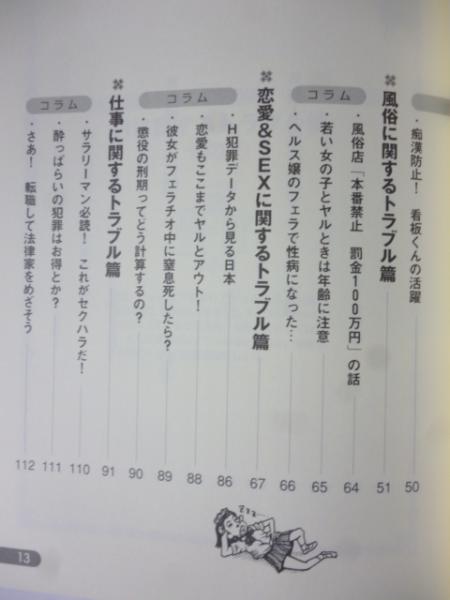 ・痴漢防止！　看板くんの活躍 50
風俗に関するトラブル篇 51
コラム
・風俗店「本番禁止　罰金100万円」の話 64
・若い女の子とヤルときは年齢に注意 65
・ヘルス嬢のフェラで性病になった… 66
恋愛&SEXに関するトラブル篇 67
コラム
・H犯罪データから見る日本 86
・恋愛もここまでヤルとアウト！ 88
・彼女がフェラチオ中に窒息死したら？ 89
・懲役の刑期ってどう計算するの？ 90
仕事に関するトラブル篇 91
コラム
・サラリーマン必読！　これがセクハラだ！ 110
・酔っぱらいの犯罪はお得とか？ 111
・さあ！　転職して法律家をめざそう 112
zzz
13